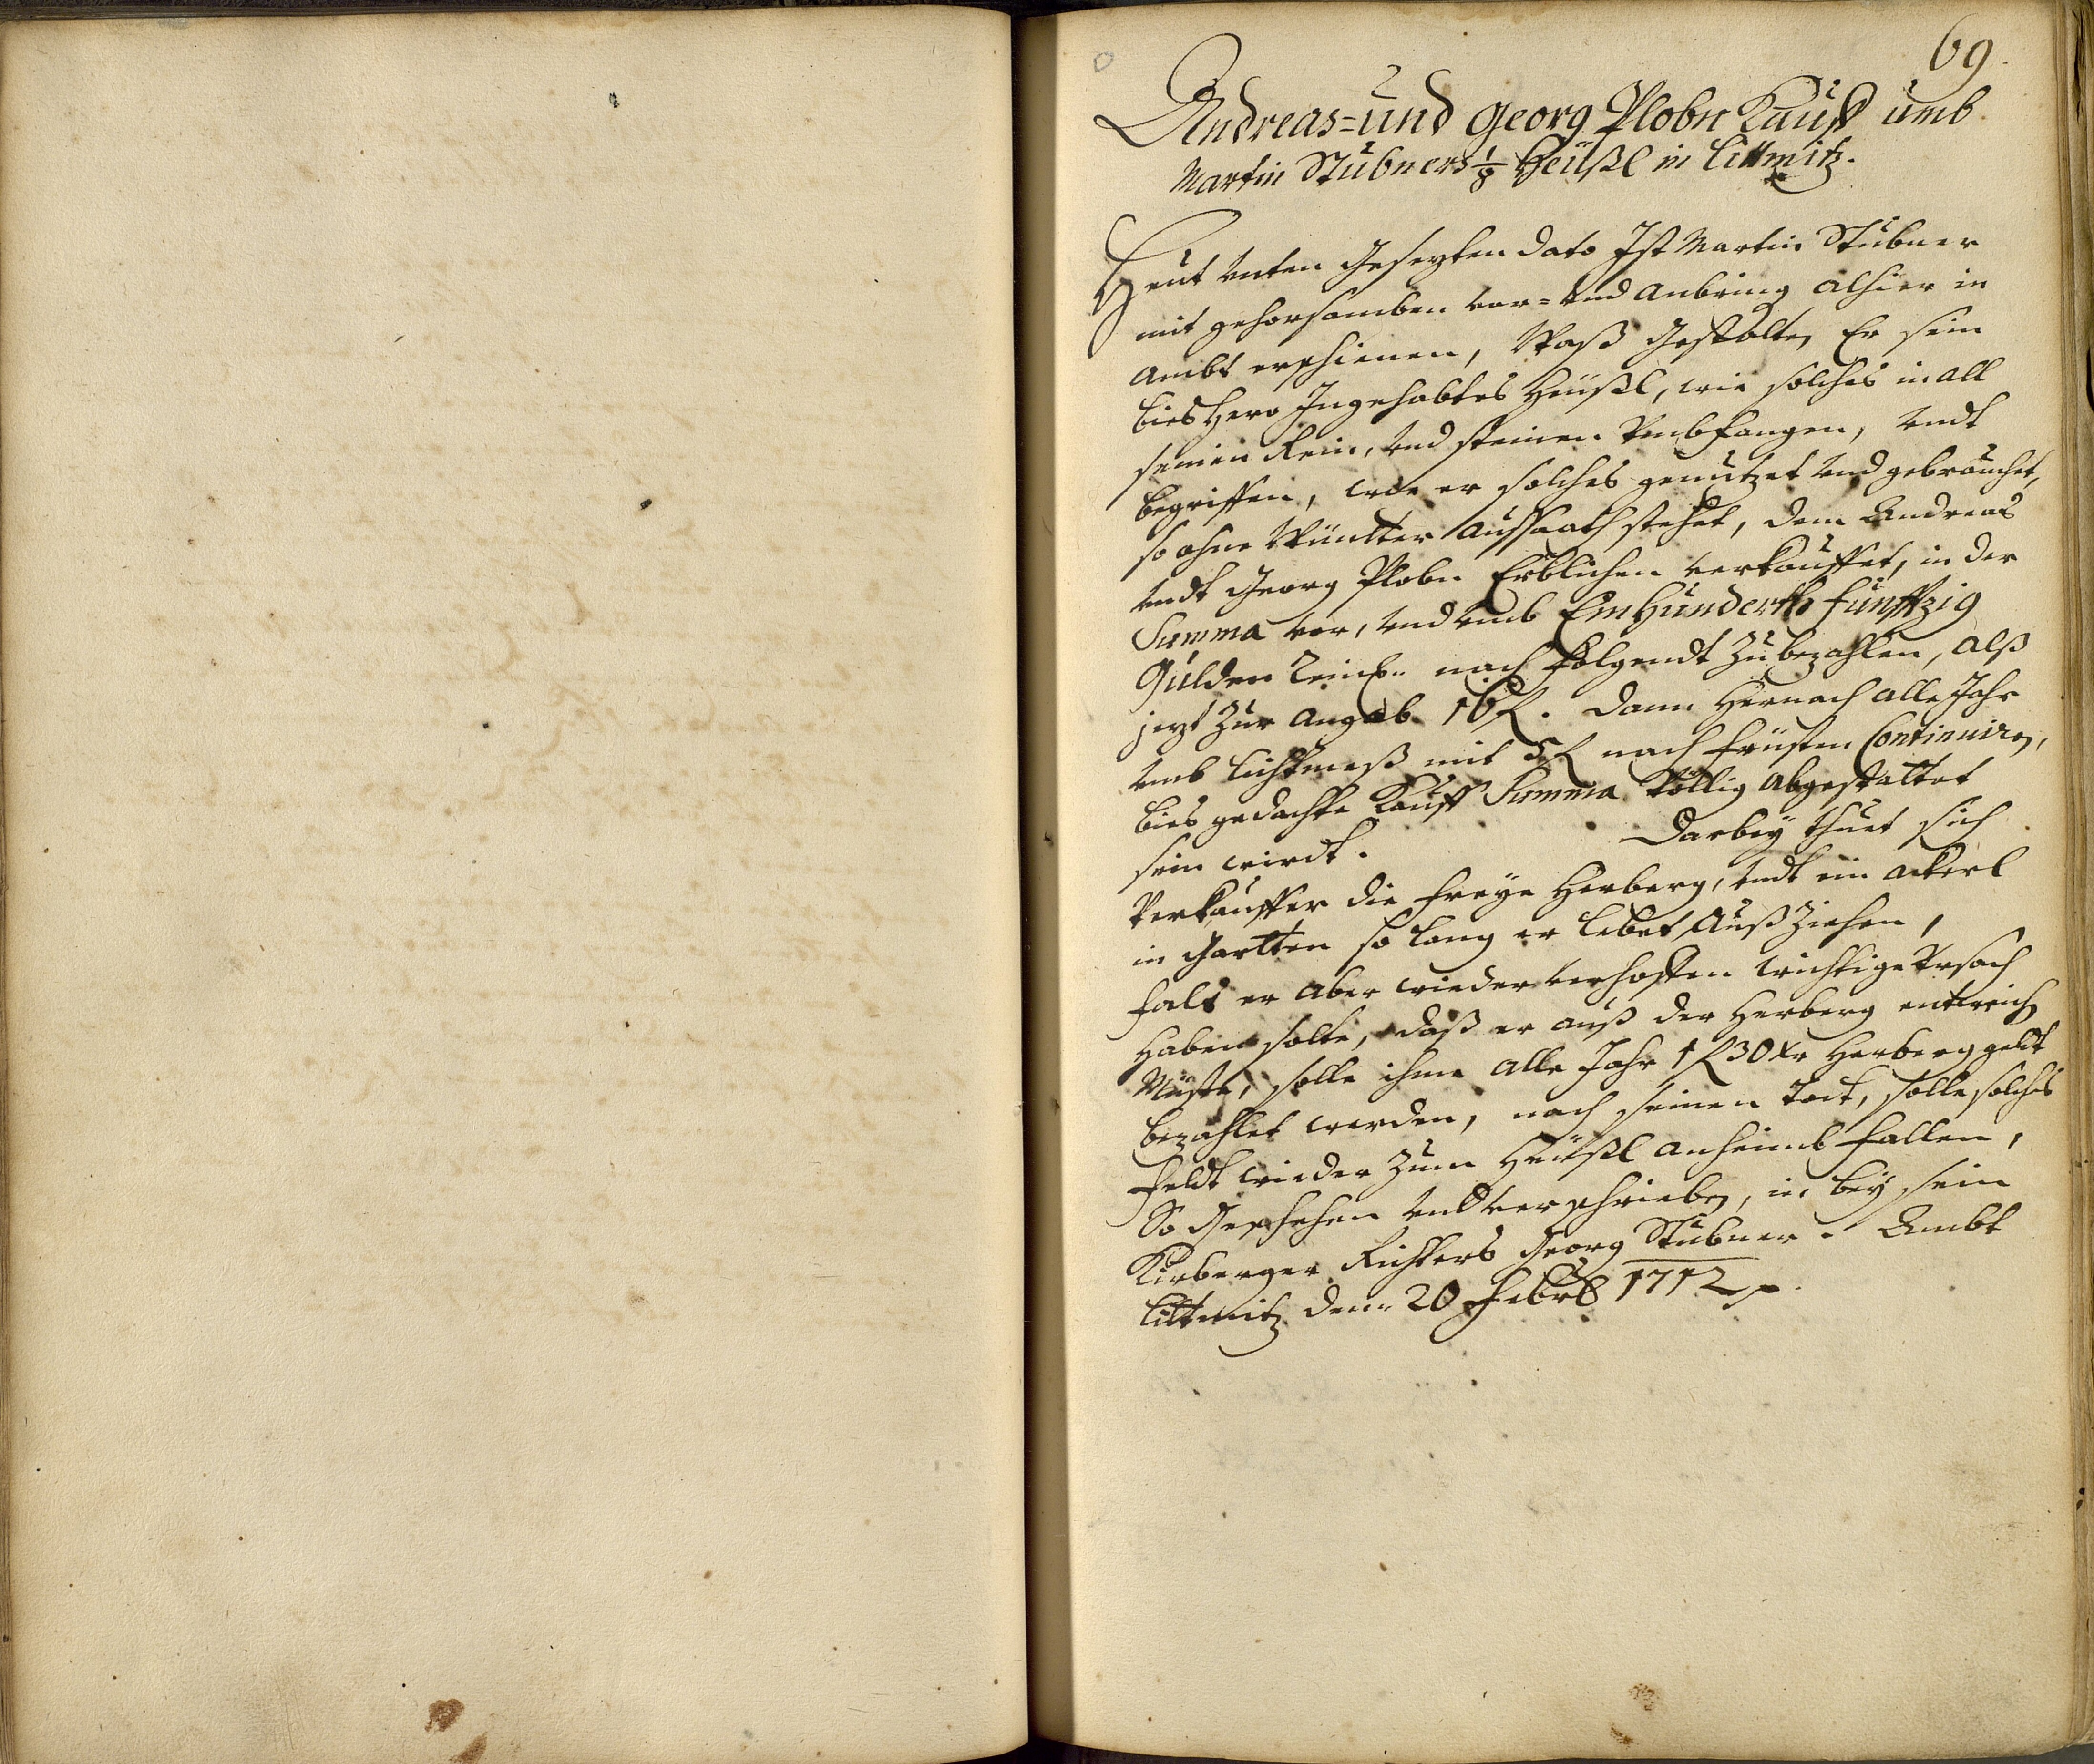 69.
Andreas= und Georg Plobn Kauff umb
Martin Stübners 1/8 Heüßl in Littmitz.
Heut unten gesezten dato Ist Martin Stübner
mit gehorsamben vor= und anbring alhier in
ambt erschienen, Waß gestalten Er sein
bies hero Ingehabtes Heüßl, wie solches in all
seinen Rein, und steinen Umbfangen, undt
begriffen, wie er solches genutzet und gebrauchet,
so ohne Wüntter aussaath stehet, dem Andreas
undt Georg Plobn Erblichen verkauffet, in der
Summa vor, und umb Ein Hünderth fünffzig
Gulden nach folgendt zu bezahlen, alß
jezt zur angab 16 f. dann hernach alle Jahr
umb lichtmeß mit 5 f nach früsten Continuiren,
bies gedachte Kauff Summa Völlig abgestattet
sein wirdt. Darbeÿ thuet sich
Verkauffer die freÿe Herberg, undt ein ackerl
in Gartten so lang er lebet außziehen,
fals er aber wieder verhoffen wichtige Ursach
haben solte, daß er auß der Herberg entweich
müste, solle ihme alle Jahr 1 f 30 xr Herberg geldt
bezahlet werden, nach seinen todt, solle solches
feldt wieder zum Heüßl anheimb fallen,
So Geschehen und verschrieben, in beÿ sein
Kirberger Richters Georg Stübner. Ambt
Littmitz den 20 Febr 1712